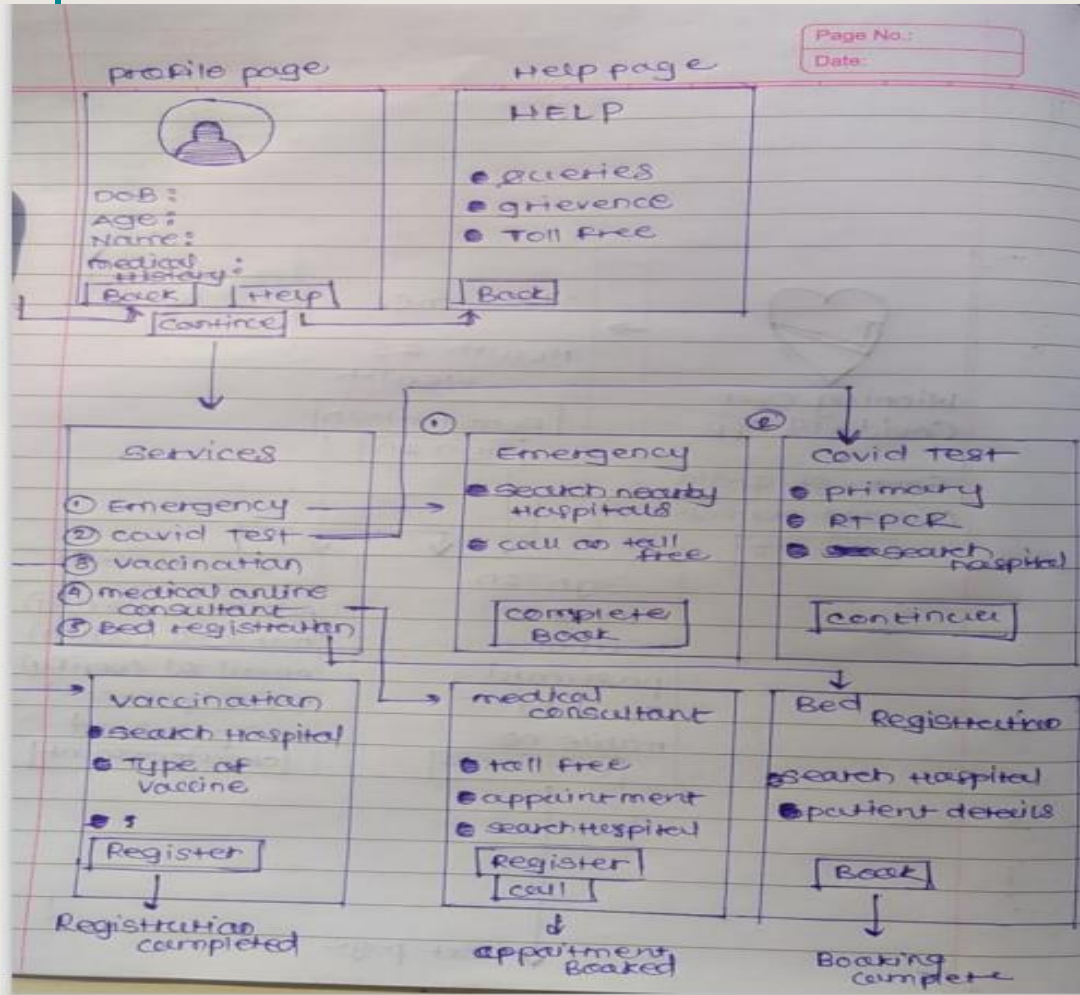 Page No.:
Date:
Profile page
Help page
DOB :
Age :
Name :
medical
History :
Back
Help
Continue
HELP
Queries
grievence
Toll Free
Back
Services
① Emergency
② covid Test
③ vaccination
④ medical online
consultant
⑤ Bed registration
①
Emergency
Search nearby
Hospitals
call on toll
free
complete
Book
②
Covid Test
primary
RTPCR
search
hospital
continue
vaccination
search Hospital
Type of
vaccine
Register
Registration
completed
medical
consultant
toll free
appointment
search Hospital
Register
call
appoitment
Booked
Bed
Registration
search Hospital
patient details
Book
Booking
complete